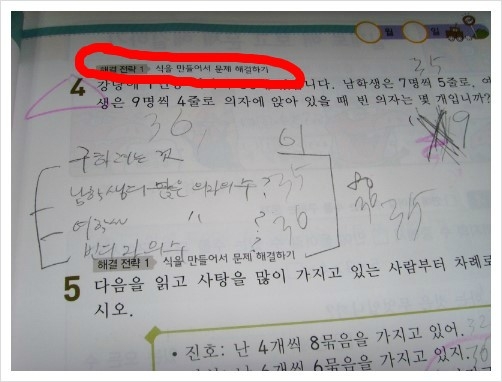 월 일
해결 전략 1 식을 만들어서 문제 해결하기
35
4 강당에 니다. 남학생은 7명씩 5줄로, 여
생은 9명씩 4줄로 의자에 앉아 있을 때 빈 의자는 몇 개입니까?
36, 9
구하려는 것
남학생 앉은 의자의 수? 35
여학생 " ? 36
빈 의 수 ?
80
36 35
해결 전략 1 식을 만들어서 문제 해결하기
5 다음을 읽고 사탕을 많이 가지고 있는 사람부터 차례로
시오.
• 진호: 난 4개씩 8묶음을 가지고 있어. 32
6개씩 6묶음을 가지고 있지. 36